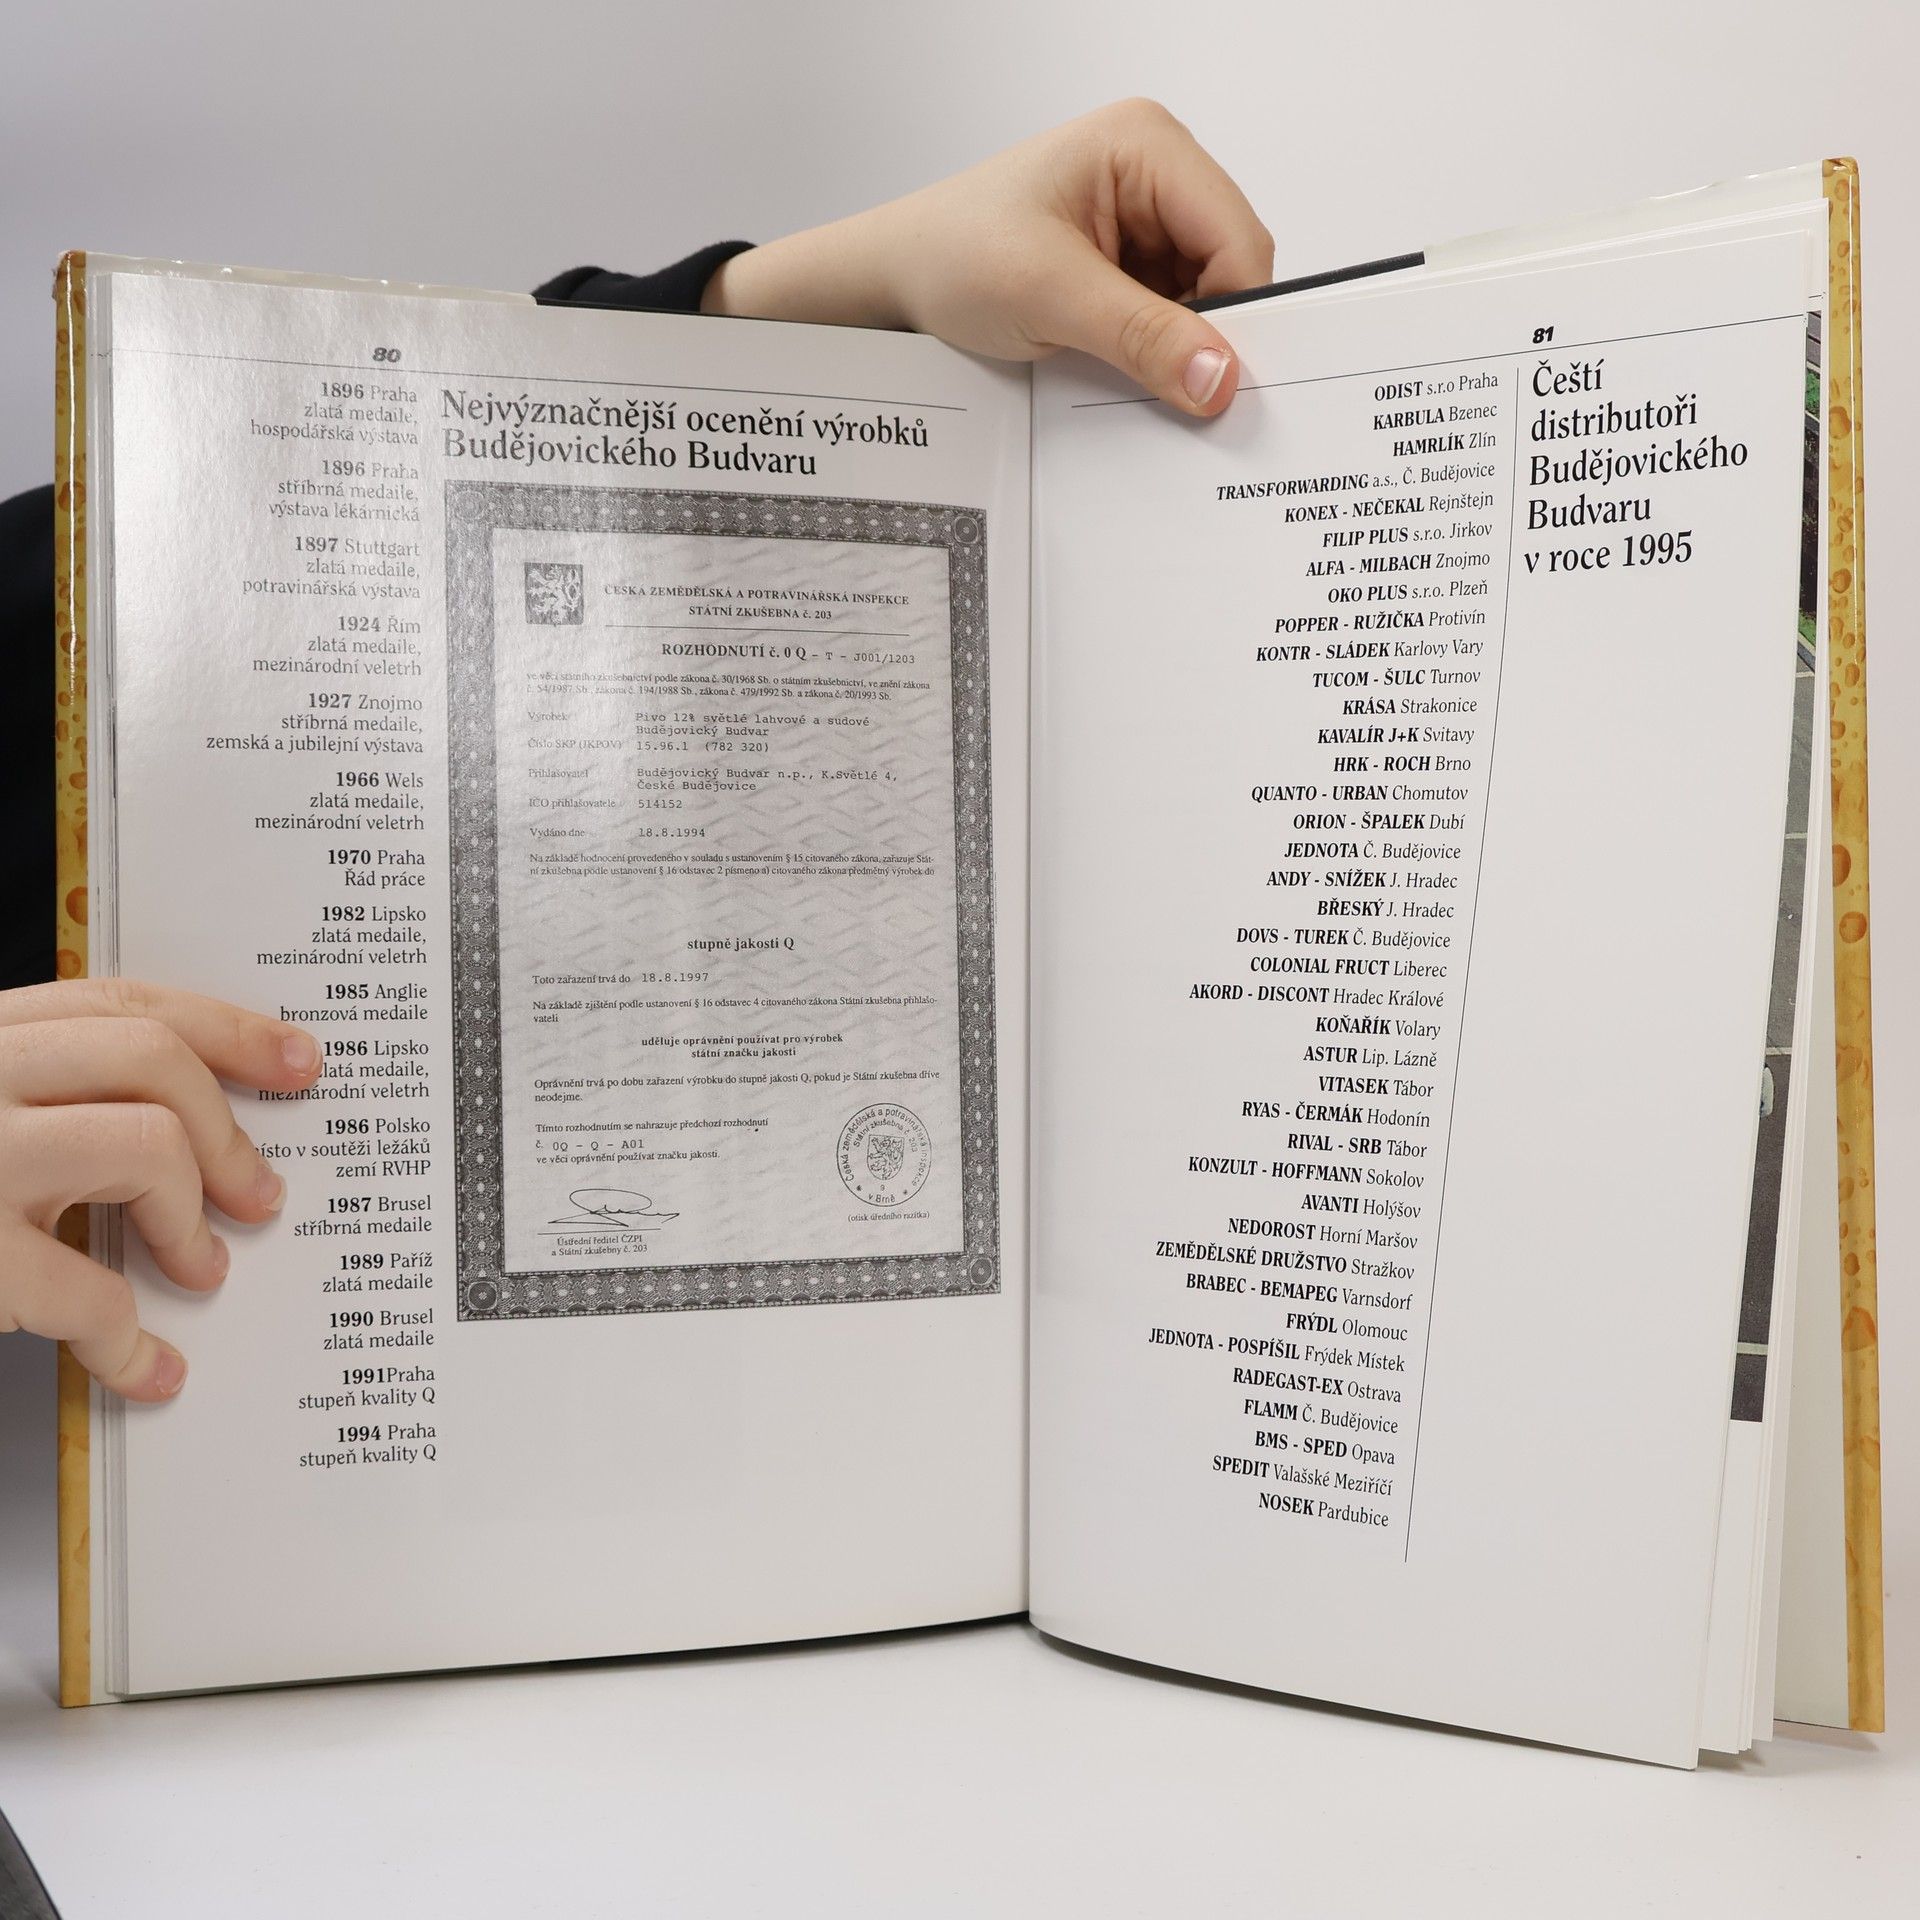 80
1896 Praha
zlatá medaile,
hospodářská výstava
1896 Praha
stříbrná medaile,
výstava lékárnická
1897 Stuttgart
zlatá medaile,
potravinářská výstava
1924 Řím
zlatá medaile,
mezinárodní veletrh
1927 Znojmo
stříbrná medaile,
zemská a jubilejní výstava
1966 Wels
zlatá medaile,
mezinárodní veletrh
1970 Praha
Řád práce
1982 Lipsko
zlatá medaile,
mezinárodní veletrh
1985 Anglie
bronzová medaile
1986 Lipsko
latá medaile,
mezinárodní veletrh
1986 Polsko
ísto v soutěži ležáků
zemí RVHP
1987 Brusel
stříbrná medaile
1989 Paříž
zlatá medaile
1990 Brusel
zlatá medaile
1991Praha
stupeň kvality Q
1994 Praha
stupeň kvality Q
Nejvýznačnější ocenění výrobků
Budějovického Budvaru
ČESKÁ ZEMĚDĚLSKÁ A POTRAVINÁŘSKÁ INSPEKCE
STÁTNÍ ZKUŠEBNA č. 203
ROZHODNUTÍ č. 0 Q - T - J001/1203
ve věci státního zkušebnictví podle zákona č. 30/1968 Sb. o státním zkušebnictví, ve znění zákona
č. 54/1987 Sb., zákona č. 194/1988 Sb., zákona č. 479/1992 Sb. a zákona č. 20/1993 Sb.
Výrobek Pivo 12% světlé lahvové a sudové
Budějovický Budvar
Číslo SKP (JKPOV) 15.96.1 (782 320)
Přihlašovatel Budějovický Budvar n.p., K.Světlé 4,
České Budějovice
IČO přihlašovatele 514152
Vydáno dne 18.8.1994
Na základě hodnocení provedeného v souladu s ustanovením § 15 citovaného zákona, zařazuje Stát-
ní zkušebna podle ustanovení § 16 odstavec 2 písmeno a) citovaného zákona předmětný výrobek do
stupně jakosti Q
Toto zařazení trvá do 18.8.1997
Na základě zjištění podle ustanovení § 16 odstavec 4 citovaného zákona Státní zkušebna přihlašo-
vateli
uděluje oprávnění používat pro výrobek
státní značku jakosti
Oprávnění trvá po dobu zařazení výrobku do stupně jakosti Q, pokud je Státní zkušebna dříve
neodejme.
Tímto rozhodnutím se nahrazuje předchozí rozhodnutí
č. 0Q - Q - A01
ve věci oprávnění používat značku jakosti.
Česká zemědělská a potravinářská inspekce
Státní zkušebna č. 203
9
v Brně
(otisk úředního razítka)
Ústřední ředitel ČZPI
a Státní zkušebny č. 203
81
Čeští
distributoři
Budějovického
Budvaru
v roce 1995
ODIST s.r.o Praha
KARBULA Bzenec
HAMRLÍK Zlín
TRANSFORWARDING a.s., Č. Budějovice
KONEX - NEČEKAL Rejnštejn
FILIP PLUS s.r.o. Jirkov
ALFA - MILBACH Znojmo
OKO PLUS s.r.o. Plzeň
POPPER - RUŽIČKA Protivín
KONTR - SLÁDEK Karlovy Vary
TUCOM - ŠULC Turnov
KRÁSA Strakonice
KAVALÍR J+K Svitavy
HRK - ROCH Brno
QUANTO - URBAN Chomutov
ORION - ŠPALEK Dubí
JEDNOTA Č. Budějovice
ANDY - SNÍŽEK J. Hradec
BŘESKÝ J. Hradec
DOVS - TUREK Č. Budějovice
COLONIAL FRUCT Liberec
AKORD - DISCONT Hradec Králové
KOŇAŘÍK Volary
ASTUR Lip. Lázně
VITASEK Tábor
RYAS - ČERMÁK Hodonín
RIVAL - SRB Tábor
KONZULT - HOFFMANN Sokolov
AVANTI Holýšov
NEDOROST Horní Maršov
ZEMĚDĚLSKÉ DRUŽSTVO Stražkov
BRABEC - BEMAPEG Varnsdorf
FRÝDL Olomouc
JEDNOTA - POSPÍŠIL Frýdek Místek
RADEGAST-EX Ostrava
FLAMM Č. Budějovice
BMS - SPED Opava
SPEDIT Valašské Meziříčí
NOSEK Pardubice